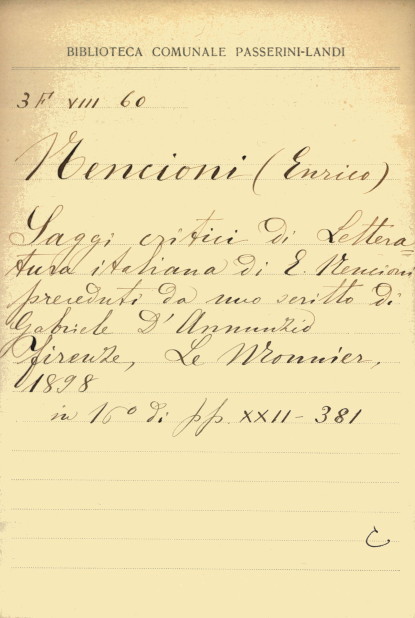 BIBLIOTECA COMUNALE PASSERINI-LANDI
3F VIII 60
Nencioni (Enrico)
Saggi critici di Lettera=
tura italiana di E. Nencioni
preceduti da uno scritto di
Gabriele D'Annunzio
Firenze, Le Monnier,
1898
in 16º di pp. XXII - 381
C